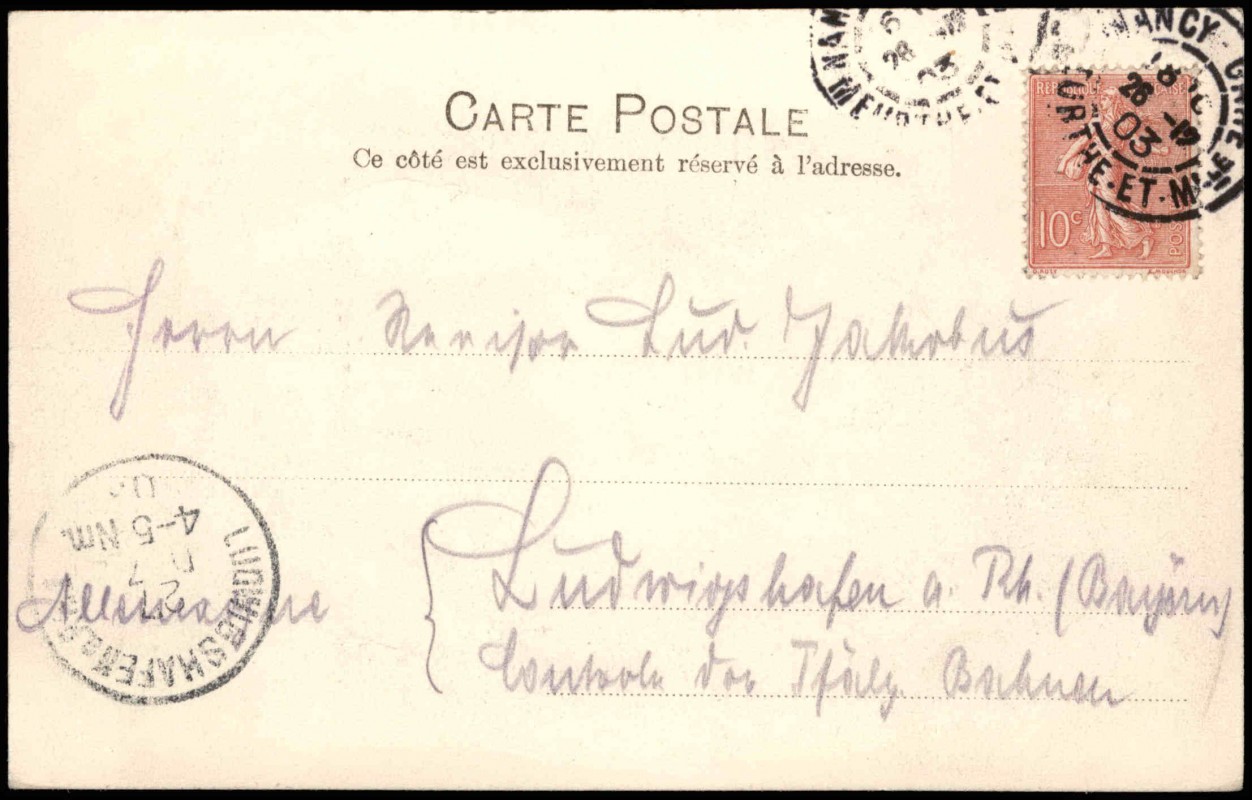 CARTE POSTALE
Ce côté est exclusivement réservé à l'adresse.
NANCY
26
03
MEURTHE-ET
NANCY - GARE
26
03
MEURTHE-ET-M
REPUBLIQUE FRANÇAISE
10c
POSTES
O. ROTY
Herrn Revisor Lud. Jakobus
Allemagne
Ludwigshafen a. Rh. (Bayern)
Controle der Pfälz. Bahnen
LUDWIGSHAFEN
4-5 Nm.